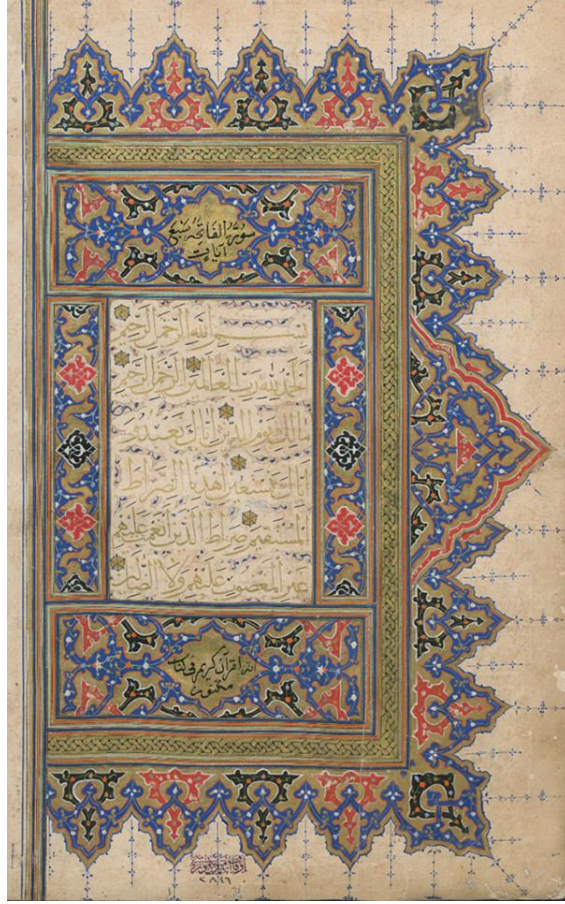 سورة الفاتحة سبع
آيات
بسم الله الرحمن الرحيم
الحمد لله رب العالمين الرحمن الرحيم
مالك يوم الدين اياك نعبد و
اياك نستعين اهدنا الصراط
المستقيم صراط الذين انعمت عليهم
غير المغضوب عليهم ولا الضالين
انه لقرآن كريم في كتاب
مكنون